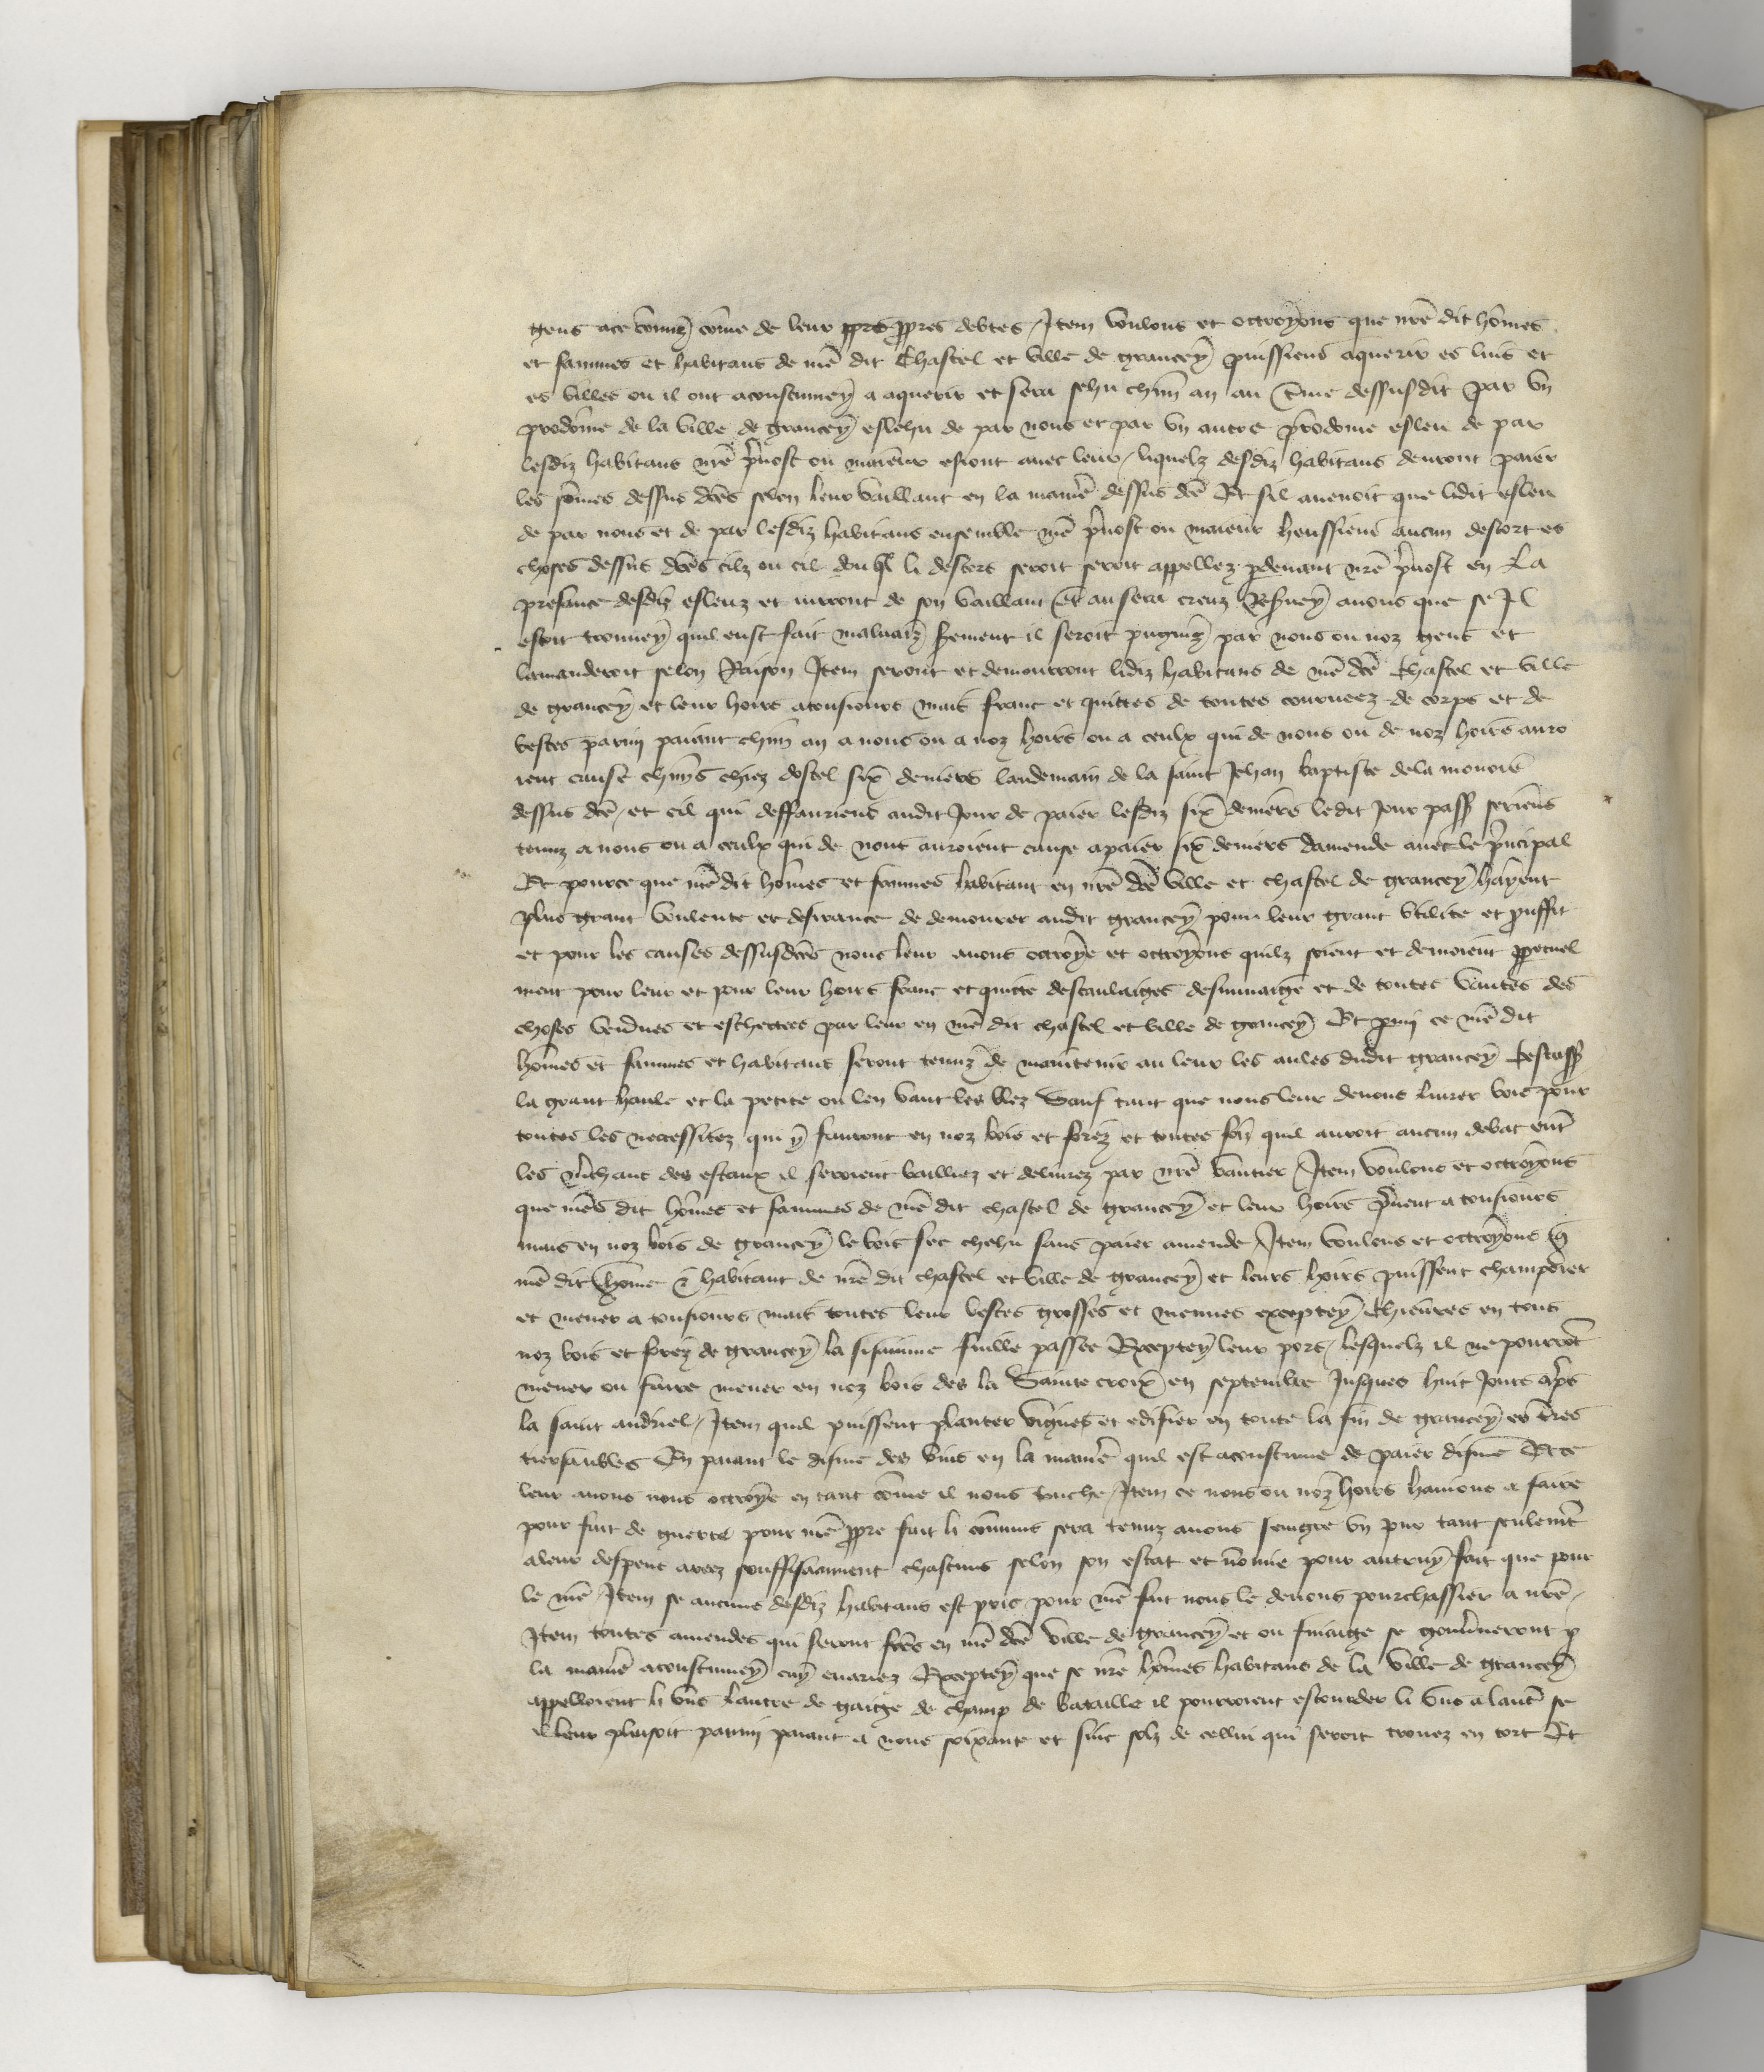 gens ace comis come de leur pprs ppres debtes / Item voulons et octroyons que nre dit homes
et fammes et habitans de nre dit Chastel et ville de grancey puissiens aquerir es lius et
es villes ou il ont acoustumey a aquerir et sera eslehu chun an au tme dessusdit par vn
prodome de la ville de grancey eslehu de par nous et par vn autre prodome esleu de par
lesdiz habitans nre pruost ou maieur esiont auec leur / liquelz desdiz habitans deuront paier
les somes dessus dces selon leur vaillant en la maniere dessus dce Et sil auenoit que lidit esleu
de par nous et de par lesdiz habitans ensemble nre pruost ou maieur heussiens aucun descort es
choses dessus dces cilz ou cil dou ql li descors seroit seroit appellez pdeuant nre pruost en La
presance desdiz esleuz et iurront de son vaillant et an sera creuz Reseruey anous que se Il
estoit trouuey quil eust fait maluaiz serement il seroit pugniz par nous ou noz gens et
lamanderoit selon Raison Item seront et demourront lidiz habitans de nre dce Chastel et ville
de grancey et leur hoirs atousiours mais franc et quittes de toutes couruees de corps et de
bestes parmi paiant chun an a nous ou a noz hoirs ou a ceulx qui de nous ou de noz hoirs auro
ient cause chuns chiez dostel six deniers landemain de la saint Jehan baptiste dela monoie
dessus dce / et cil qui deffauriens audit Jour de paier lesdiz six deniers ledit Jour passe seriens
tenuz a nous ou a ceulx qui de nous auroient cause apaier six deniers damende auec le principal
Et pource que nre dit homes et fammes habitant en nre dce ville et chastel de grancey hayent
plus grant voulente et desirance de demourer audit grancey pour leur grant vtilite et prouffit
et pour les causes dessusdces nous leur auons octroye et octroyons quilz soient et demoient ppetuel
ment pour leur et pour leur hoirs franc et quitte descaulaiges desminaige et de toutes vantes des
choses vendues et eschectees par leur en nre dit chastel et ville de grancey Et pmi ce nre dit
homes et fammes et habitans seront tenuz de maintenir au leur les aules dudit grancey
la grant haule et la petite ou len vant les blez Sauf tant que nous leur deuons liurer bois pour
toutes les necessitez qui y fauront en noz bois et forez et toutes foiz quil auroit aucun debat entre
les mrchans des estaux il seroient bailliez et deliurez par nre vantier / Item voulons et octroyons
que nres dit homes et fammes de nre dit chastel de grancey et leur hoirs prnent a tousiours
mais en noz bois de grancey le bois sec chehu sans paier amende Item voulons et octroyons q
nre dit home et habitant de nre dit chastel et ville de grancey et leurs hoirs puissent champoier
et mener a tousiours mais toutes leur bestes grosses et menues exceptey Chieures en tous
noz bois et forez de grancey la sisiinme fuille passee Exceptey leur pors / lesquelz il ne pourront
mener ou faire mener en noz bois des la Sainte croix en septembre Jusques huit Jours apres
la saint andriel / Item quil puissent planter vignes et edifier en toute la fin de grancey es terres
tiersaubles En paiant le disme des vins en la maniere quil est acoustume de paier disme Et ce
leur auons nous octroye en tant come il nous touche / Item ce nous ou noz hoirs hauions a faire
pour fait de guerre pour nre ppre fait li comuns sera tenuz anous sengre vn Jour tant seulement
aleur despens arez souffisaument chascuns selon son estat et nomie pour autruy fait que pour
le nre / Item se aucuns desdiz habitans est pris pour nre fait nous le deuons pourchassier a nre /
Item toutes amendes qui seront fces en nre dce ville de grancey et ou finaige se gouurneront p
la maniere acoustumey cay enariez Exceptey que se nre homes habitans de la ville de grancey
appelloient li vns lautre de gaige de champ de bataille il pourroient escouder li vns a lautre se
il leur plaisoit parmi paiant a nous soixante et sinc solz de cellui qui seroit trouuez en tort Et